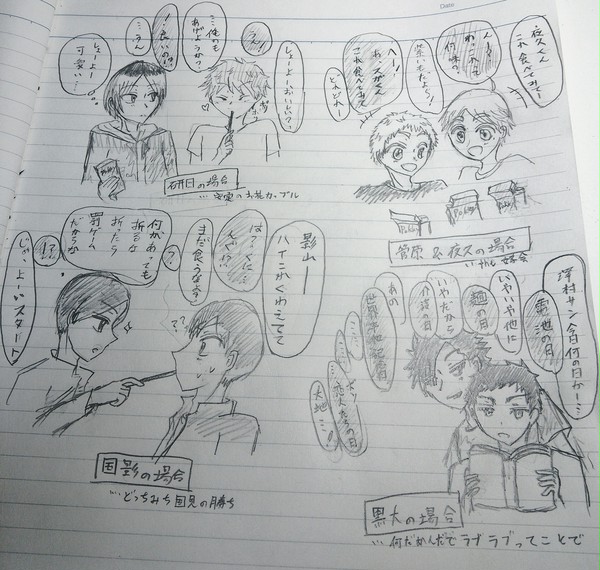 夜久くん
これ食べてみてー
ん〜
わっこれって
何味?
紫いもだよ!
へー!
あ、スガくん
これ食べてみて
どれどれー
菅原&夜久の場合
しょーよーおいしい?
うん!
…俺のも
あげようか?
!良いの!?
…うん
しょーよー
可愛い…
研日の場合
…安定のお花カップル
影山ー
ハイこれくわえてて
は?くにみ
まだ食うなよ?
?
何があっても
折るな
折ったら
罰ゲーム
だからな
!?
じゃ、よーいスタート
国影の場合
…どっちみち国見の勝ち
澤村サン今日何の日か…
電池の日
いやいや他に
麺の日
いやだから
介護の日
あの
世界平和記念日
…恋人たちの日
大地…!
黒大の場合
…何だかんだでラブラブってことで
Pocky